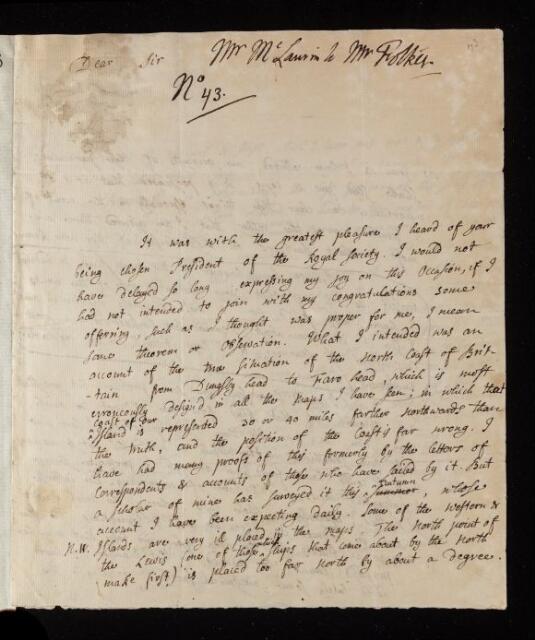 Dear Sir
Mr McLaurin to Mr Folkes.
No 43.
It was with the greatest pleasure I heard of your
being chosen President of the Royal Society. I would not
have delayed so long expressing my joy on this Occasion, if I
had not intended to join with my congratulations some
offering, such as I thought was proper for me, I mean
some theorem or Observation. What I intended was an
account of the true situation of the North Coast of Brit-
-tain from Dungsby head to Faro head, which is most
erroneously design'd in all the Maps I have seen; in which that
coast of our
Island is represented 20 or 40 miles farther northwards than
the truth, and the position of the coast is far wrong. I
have had many proofs of this formerly by the letters of
Correspondents & accounts of those who have sailed by it. But
autumn
a Scholar of mine has surveyed it this Summer, whose
account I have been expecting daily. Some of the Western &
N.W. Islands are very ill placed in the maps The North point of
the Lewis (one of those ships that come about by the North
make first) is placed too far North by about a Degree.